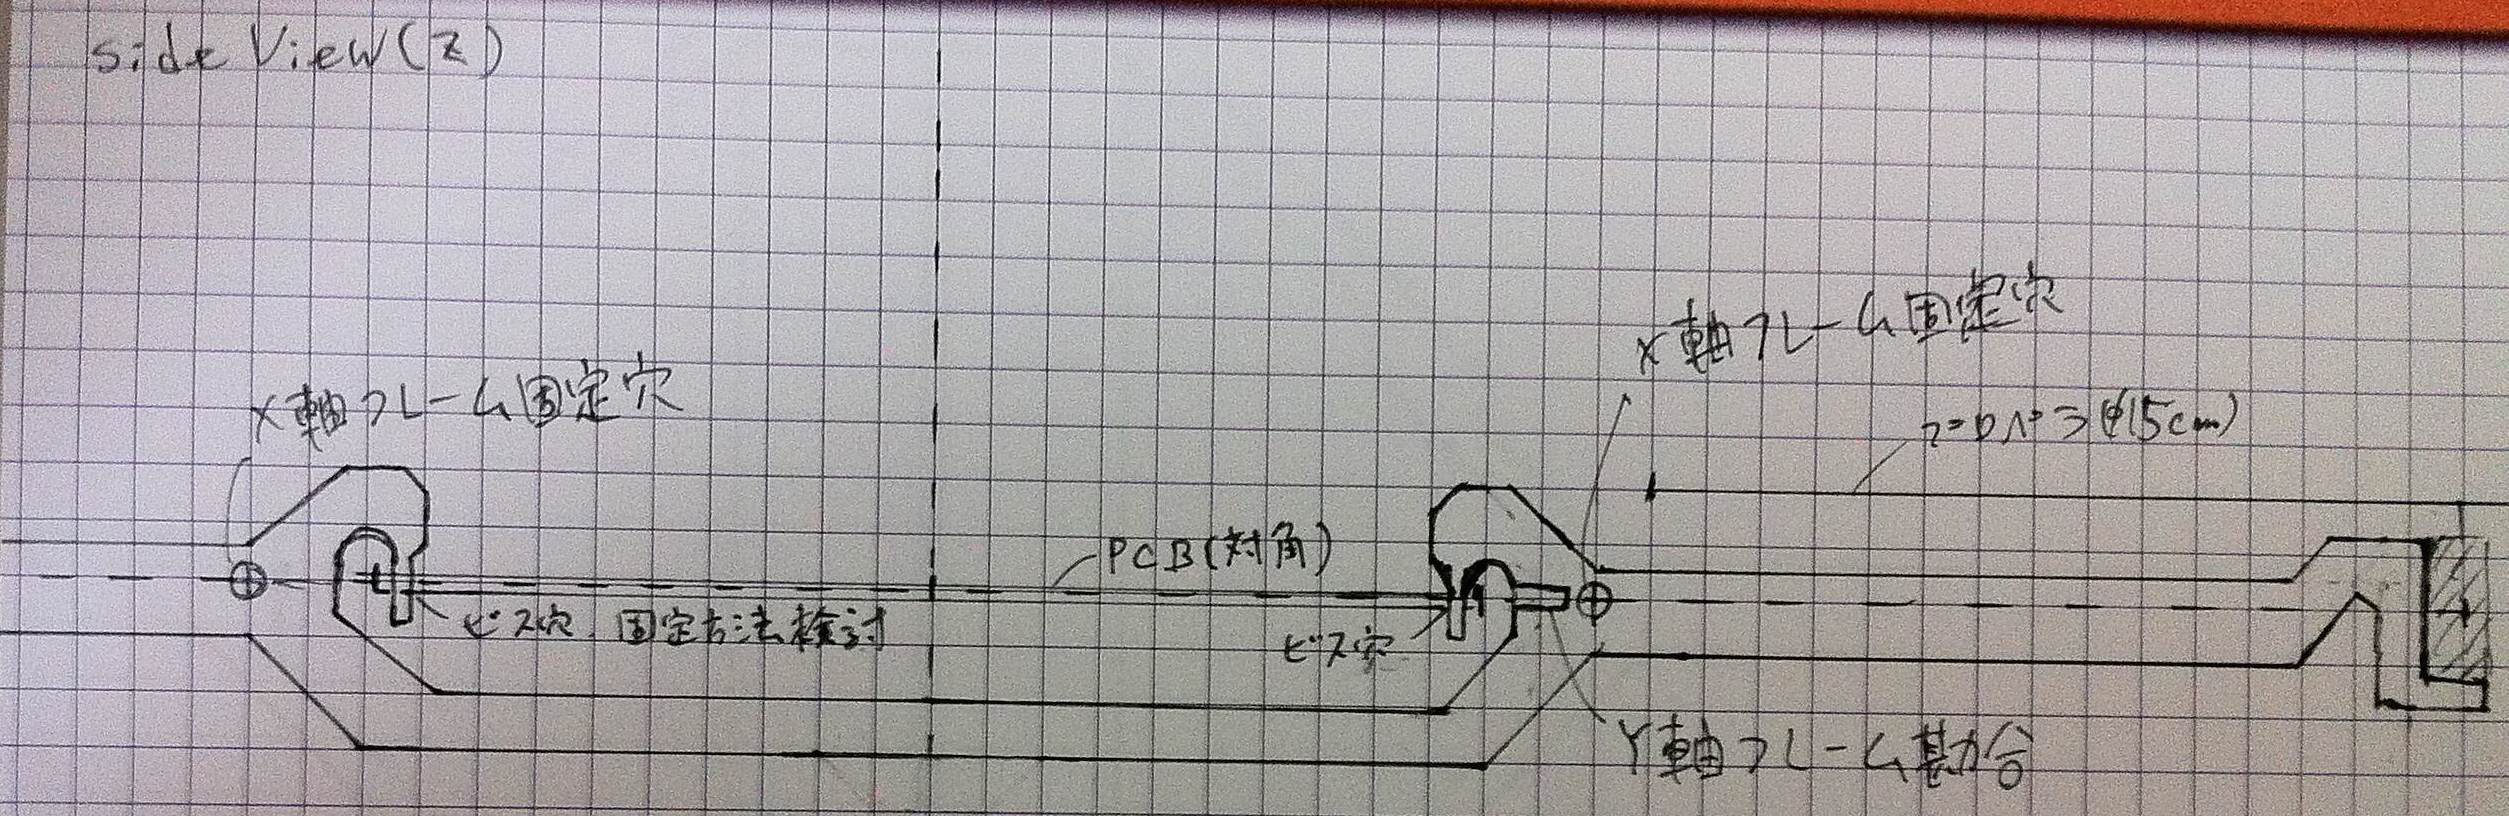 side View(Z)
X軸フレーム固定穴
X軸フレーム固定穴
プロペラ(φ15cm)
PCB(対角)
ビス穴 固定方法検討
ビス穴
Y軸フレーム勘合